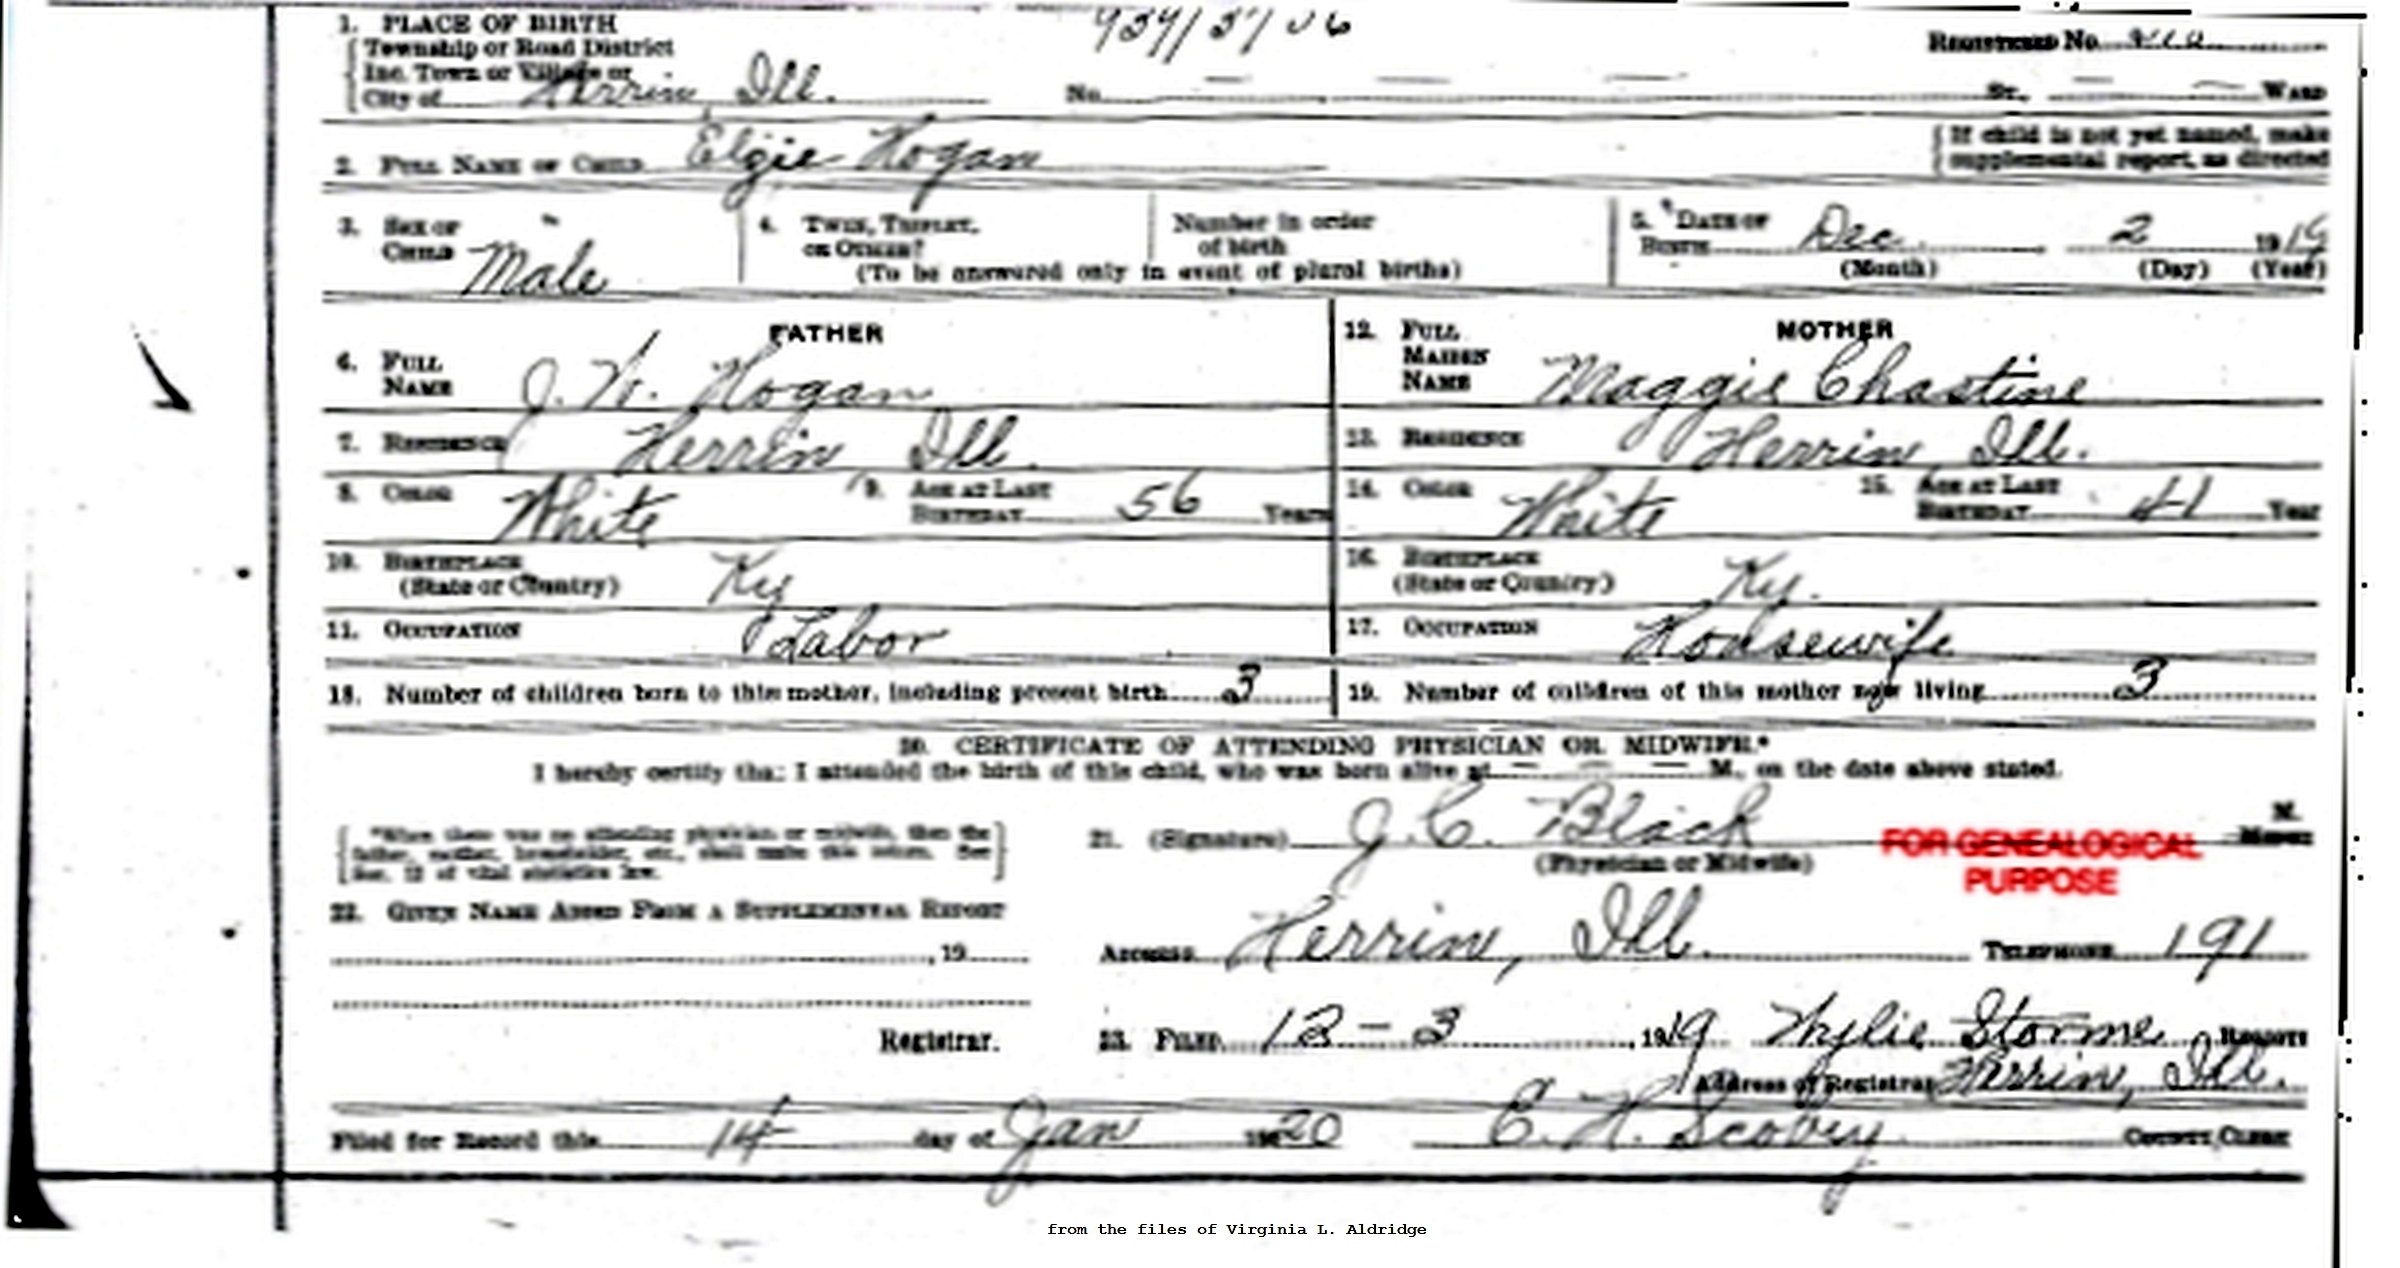 1. PLACE OF BIRTH
Township or Road District
Inc. Town or Village or
City of Herrin, Ill. No. St., Ward
Registered No.
2. Full Name of Child Elgie Hogan
{If child is not yet named, make
supplemental report, as directed
3. Sex of Child Male
4. Twin, Triplet, or Other?
Number in order of birth
(To be answered only in event of plural births)
5. Date of Birth Dec. 2 1919
(Month) (Day) (Year)
FATHER
6. Full Name J. W. Hogan
7. Residence Herrin Ill.
8. Color White 9. Age at Last Birthday 56 Years
10. Birthplace (State or Country) Ky
11. Occupation Labor
MOTHER
12. Full Maiden Name Maggie Chastine
13. Residence Herrin, Ill.
14. Color White 15. Age at Last Birthday 41 Year
16. Birthplace (State or Country) Ky.
17. Occupation Housewife
18. Number of children born to this mother, including present birth 3
19. Number of children of this mother now living 3
20. CERTIFICATE OF ATTENDING PHYSICIAN OR MIDWIFE.*
I hereby certify that I attended the birth of this child, who was born alive at M., on the date above stated.
{*When there was no attending physician or midwife, then the
father, mother, householder, etc., shall make this return. See
Sec. 12 of vital statistics law.}
21. (Signature) J. C. Black
(Physician or Midwife)
FOR GENEALOGICAL
PURPOSE
22. Given Name Added From a Supplemental Report
, 19
Registrar.
Address Herrin, Ill. Telephone 191
23. Filed 12-3, 1919 Wylie Storme
Address of Registrar Herrin, Ill.
Filed for Record this 14 day of Jan 1920 E. H. Scobey County Clerk
from the files of Virginia L. Aldridge